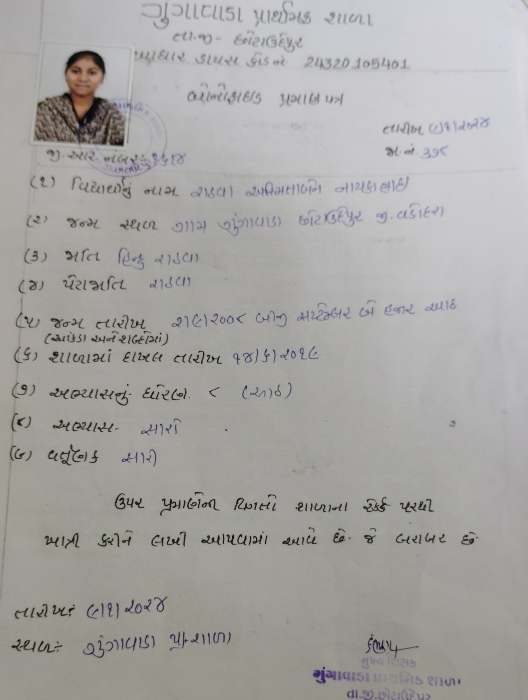 ગુંગાવાડા પ્રાથમિક શાળા
તા.જી- છોટાઉદેપુર
ડાયસ કોડ નં 24320105401
બોનોફાઇડ પ્રમાણપત્ર
તારીખ ૯/૧/૨૦૨૪
જા.નં ૩૭૮
જી.આર નંબર:
(૧) વિદ્યાર્થીનું નામ રાઠવા નાયકાભાઇ
(૨) જન્મ સ્થળ ગામ ગુંગાવાડા છોટાઉદેપુર જી.વડોદરા
(૩) જાતિ હિન્દુ રાઠવા
(૪) પેટાજાતિ રાઠવા
(૫) જન્મ તારીખ ૨/૯/૨૦૦૮ બીજી સપ્ટેમ્બર બે હજાર આઠ
(આંકડા અને શબ્દોમાં)
(૬) શાળામાં દાખલ તારીખ ૧૪/૬/૨૦૧૯
(૭) અભ્યાસનું ધોરણ. ૮ (આઠ)
(૮) અભ્યાસ- સારો
(૯) વર્તુણક સારી
ઉપર પ્રમાણેની વિગતો શાળાના રેકર્ડ પરથી
ખાત્રી કરીને લખી આપવામાં આવે છે. જે બરાબર છે.
તારીખ: ૯/૧/૨૦૨૪
સ્થળ: ગુંગાવાડા પ્રા.શાળા
મુખ્ય શિક્ષક
ગુંગાવાડા પ્રાથમિક શાળા
તા.જી.છોટાઉદેપુર